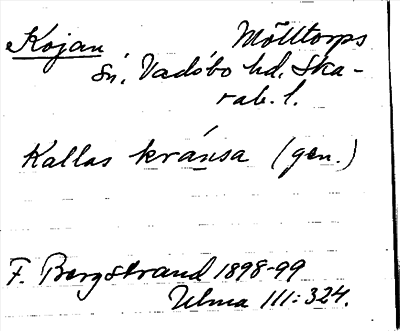 Kojan Mölltorps
sn. Vadsbo hd. Ska-
rab. l.
Kallas kránsa (gen.)
F. Bergstrand 1898-99
Ulma 111:324.